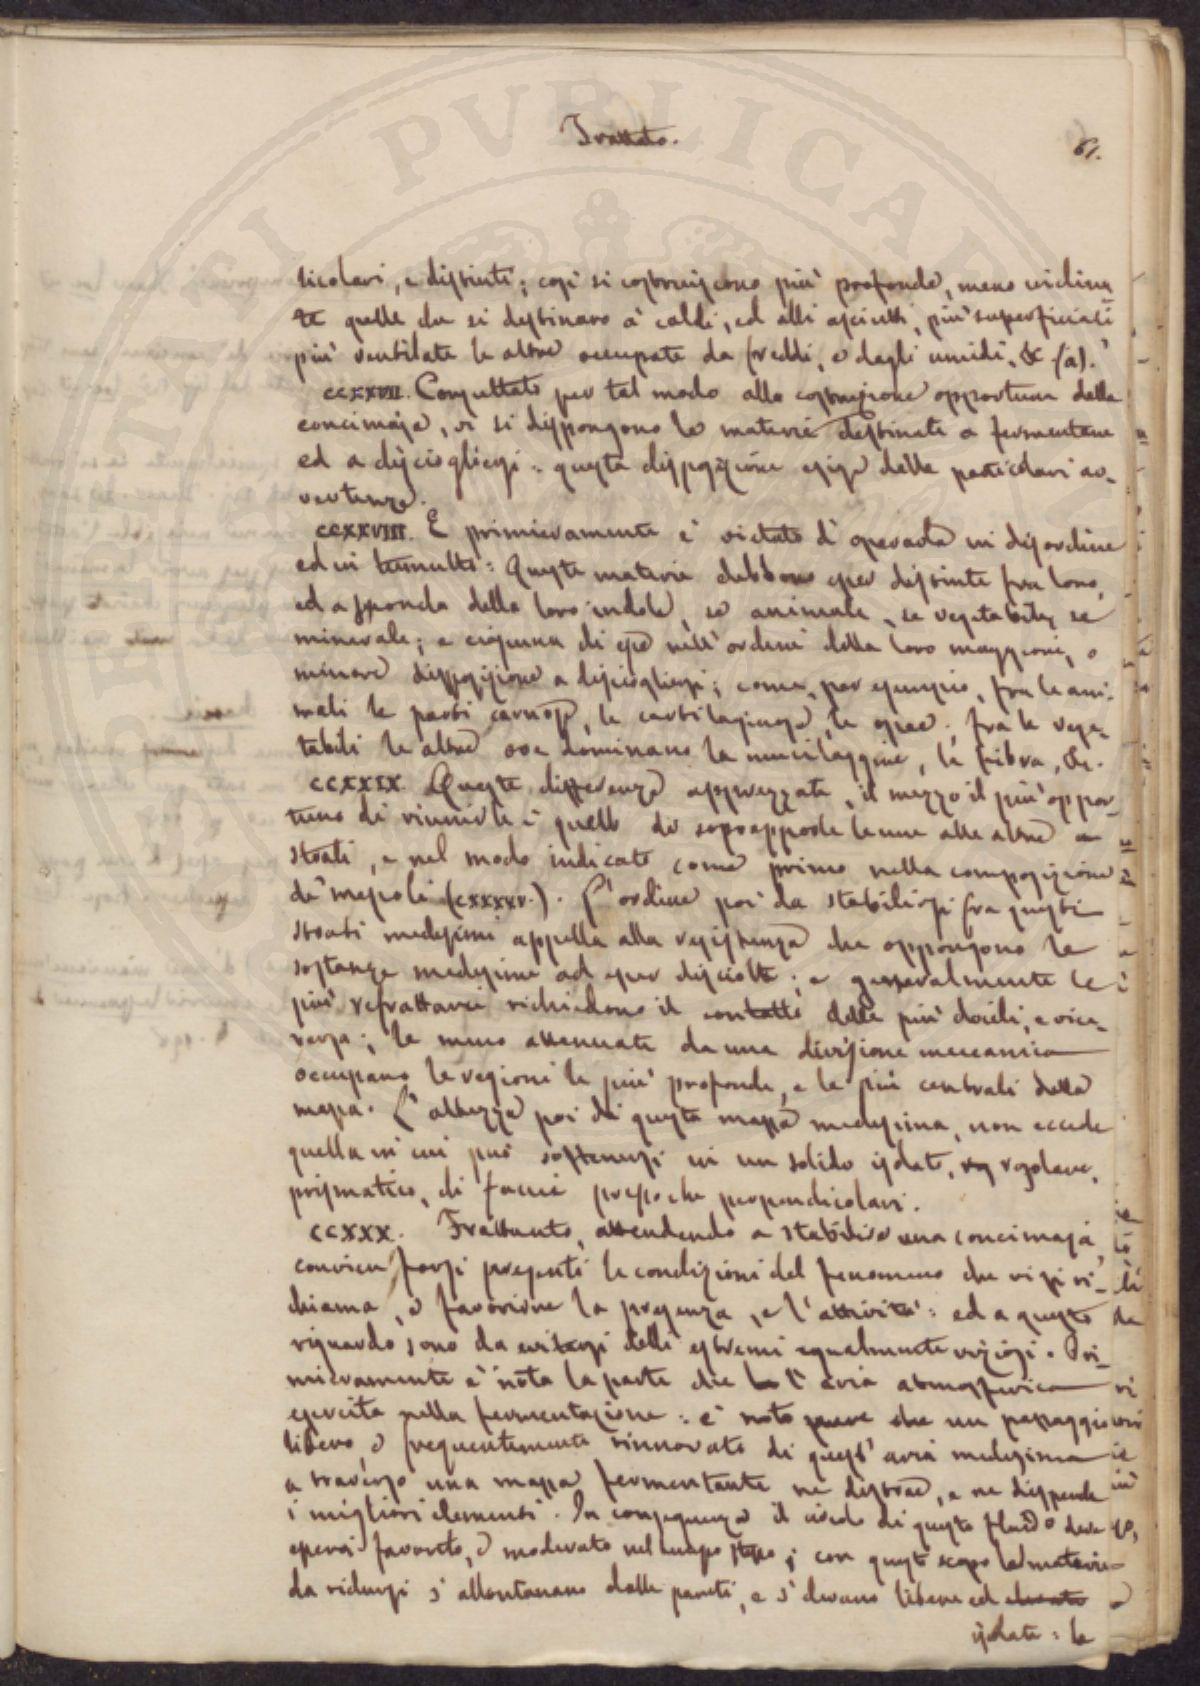 Trattato.
61.
ticolari, e distinti; così si costruiscono più profonde, meno
te quelle che si destinano a' caldi, ed alli asciutti, più superficiali
più ventilate le altre occupate da freddi, e dagli umidi, &c (a).
CCXXVII. Completato per tal modo alla costruzione opportuna della
concimaja, vi si dispongono le materie destinate a fermentare
ed a disciogliersi: questa disposizione esige delle particolari av-
vertenze.
CCXXVIII. E primieramente è vietato d'operarla in disordine
ed in tumulto: Queste materie debbono esser distinte fra loro,
ed a seconda della loro indole, se animale, se vegetabile, se
minerale; e ciascuna di esse nell'ordine della loro maggiore, o
minore disposizione a disciogliersi; come, per esempio, fra le ani-
mali le parti carnose, le cartilaginose, le ossee; fra le vege-
tabili le altre ove dominano la mucilaggine, la fibra, &c.
CCXXIX. Queste differenze apprezzate, il mezzo il più oppor-
tuno di riunirle è quello di soprapporle le une alle altre a
strati, e nel modo indicato come primo nella composizione
de' mescoli (CXXXXV.). L'ordine poi da stabilirsi fra questi
strati medesimi appella alla resistenza che oppongono le
sostanze medesime ad esser disciolte; e generalmente le
più refrattarie richiedono il contatto delle più docili, e vice-
versa; le meno attenuate da una divisione meccanica
occupano le regioni le più profonde, e le più centrali della
massa. L'altezza poi di questa massa medesima, non eccede
quella in cui può sostenersi in un solido isolato, regolare,
prismatico, di faccie pressoche perpendicolari.
CCXXX. Frattanto, attendendo a stabilire una concimaja,
convien farsi presenti le condizioni del fenomeno che vi si ri-
chiama, e favorirne la presenza, e l'attività: ed a questo
riguardo sono da evitarsi delli estremi egualmente viziosi. Pri-
mieramente è nota la parte che l'aria atmosferica
esercita nella fermentazione: è noto pure che un passaggio
libero e frequentemente rinnovato di quest'aria medesima
a traverso una massa fermentante ne distrae, e ne disperde
i migliori elementi. In conseguenza il circolo di questo fluido deve
essersi favorito, e moderato nel tempo stesso; con questo scopo le materie
da ridursi s'allontanano dalle pareti, e s'elevano libere ed
isolate: le